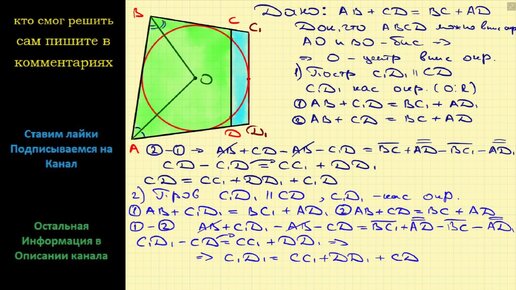 кто смог решить
сам пишите в
комментариях
Ставим лайки
Подписываемся на
Канал
Остальная
Информация в
Описании канала
B
C
C₁
O
A
D
D₁
Дано: AB + CD = BC + AD
Док, что ABCD можно впис окр.
AO и BO - бис →
→ O - центр впис окр.
1) Постр C₁D₁ || CD
C₁D₁ кас окр. (O;R)
① AB + C₁D₁ = BC₁ + AD₁
② AB + CD = BC + AD
②-① → AB + CD - AB - C₁D₁ = BC + AD - BC₁ - AD₁
CD - C₁D₁ = CC₁ + DD₁
CD = CC₁ + DD₁ + C₁D₁
2) Пров C₁D₁ || CD, C₁D₁ - кас окр.
① AB + C₁D₁ = BC₁ + AD₁ ② AB + CD = BC + AD
①-② AB + C₁D₁ - AB - CD = BC₁ + AD₁ - BC - AD
C₁D₁ - CD = CC₁ + DD₁ ⇒
⇒ C₁D₁ = CC₁ + DD₁ + CD